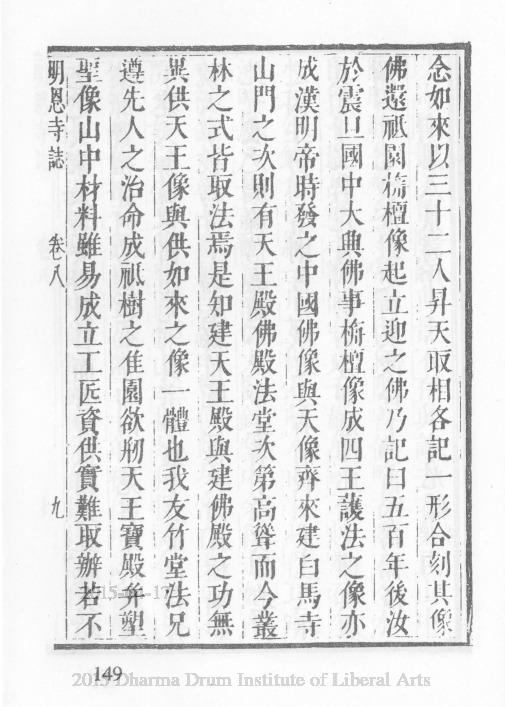 念如來以三十二人昇天取相各記一形合刻其像
佛還祗園栴檀像起立迎之佛乃記曰五百年後汝
於震旦國中大興佛事栴檀像成四王護法之像亦
成漢明帝時發之中國佛像與天像齊來建白馬寺
山門之次則有天王殿佛殿法堂次第高聳而今叢
林之式皆取法焉是知建天王殿與建佛殿之功無
異供天王像與供如來之像一體也我友竹堂法兄
遵先人之治命成祗樹之隹園欲刱天王寶殿并塑
聖像山中材料雖易成立工匠資供實難取辦若不
明恩寺誌 卷八 九
149
2015 Dharma Drum Institute of Liberal Arts